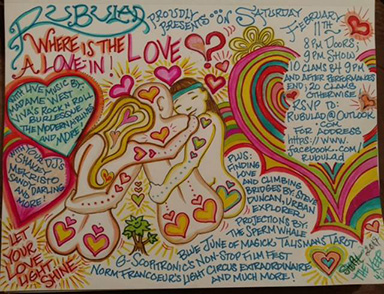 RUBULAD
PROUDLY
PRESENTS
ON SATURDAY
FEBRUARY
11TH
WHERE IS THE LOVE?
A LOVE IN!
8PM DOORS;
9PM SHOW
10 CLAMS B4 9PM
AND AFTER PERFORMANCES
END; 20 CLAMS
OTHERWISE.
RSVP TO:
RUBULAD@OUTLOOK
.COM
FOR ADDRESS
https://www.
facebook.com/
rubulad
WITH LIVE MUSIC BY:
MADAME WEST
VIVA'S ROCK N ROLL
BURLESQUE
THE MODERN
AND
MORE!
WITH
YOUR DJ'S
SHAKEY
MEKANISTO
DARLING
MORE!
PLUS:
FINDING
LOVE
AND
CLIMBING
BRIDGES BY STEVE
DUNCAN, URBAN
EXPLORER
PROJECTIONS BY:
THE SPERM WHALE
BLUE JUNE OF MAGICK TALISMANS TAROT
G-SCOPITRONIC'S NON-STOP FILM FEST
NORM FRANCOEUR'S LIGHT CIRCUS EXTRAORDINAIRE
AND MUCH MORE!
LET
YOUR
LOVE
LIGHT
SHINE